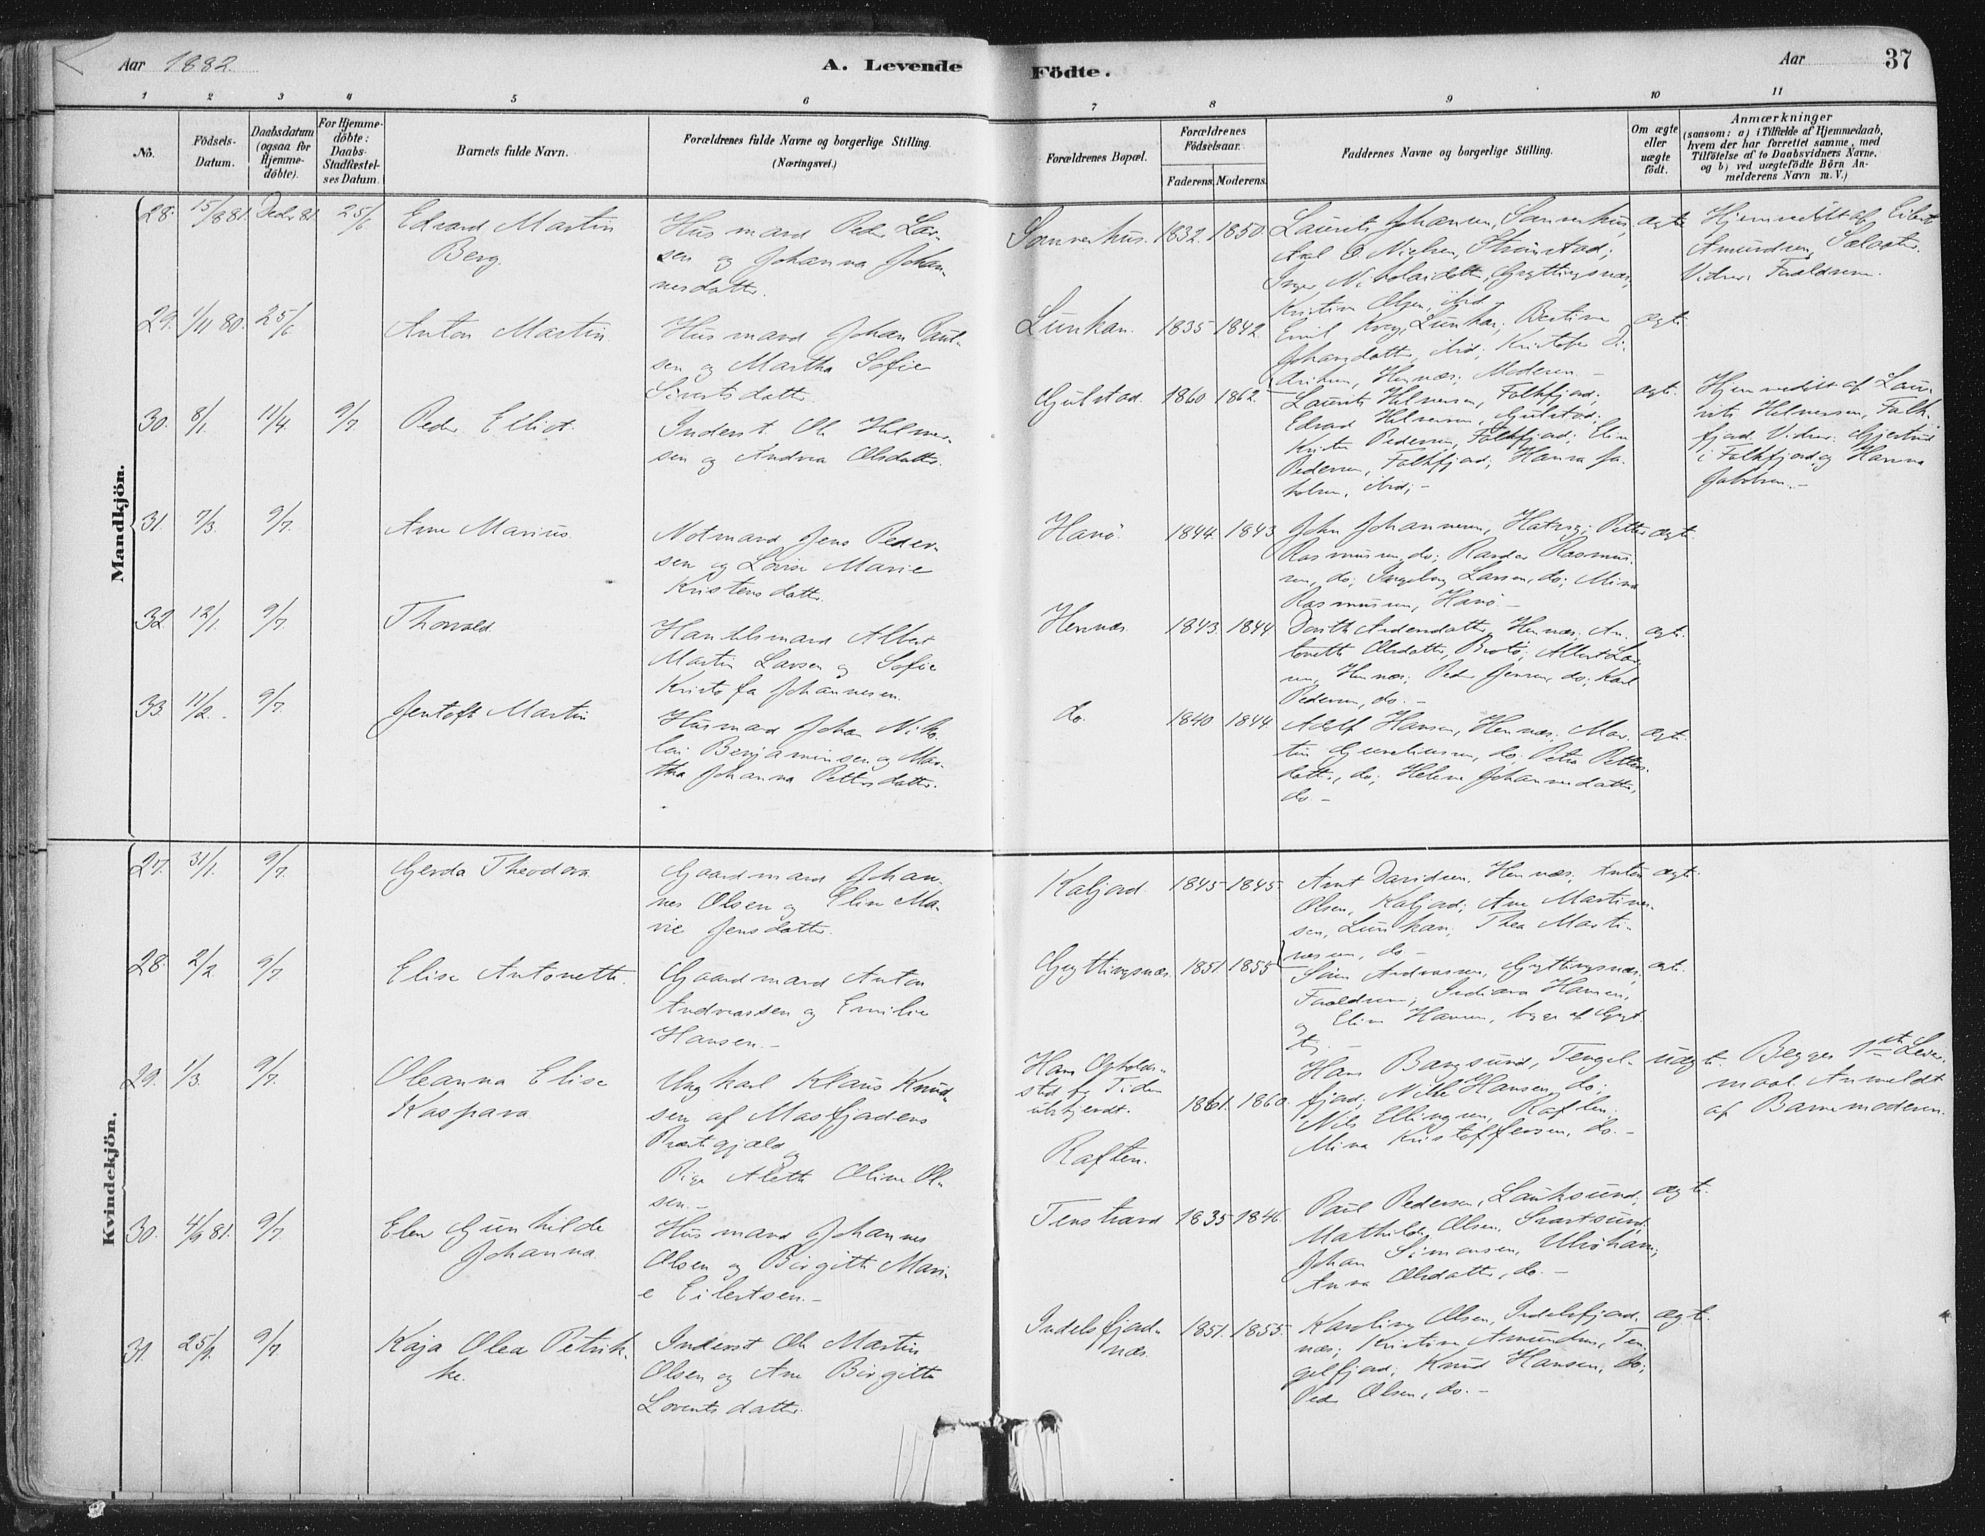 Aar 1882.
A. Levende Födte.
Aar
37
1 2 3 4 5 6 7 8 9 10 11
No.
Födsels-Datum.
Daabsdatum (ogsaa for Hjemmedöbte).
For Hjemmedöbte: Daabs-Stadfæstelses Datum.
Barnets fulde Navn.
Forældrenes fulde Navne og borgerlige Stilling (Næringsvei.)
Forældrenes Bopæl.
Forældrenes Födselsaar.
Faderens. Moderens.
Faddernes Navne og borgerlige Stilling.
Om ægte eller uægte födt.
Anmærkninger (saasom: a) i Tilfælde af Hjemmedaab, hvem der har forrettet samme, med Tilföielse af to Daabsvidners Navne. og b) ved uægtefödte Börn Anmelderens Navn m. V.)
Mandkjön.
28. 15/8 81. Decbr 81 25/6 Edvard Martin
Berg.
Husmand Peder Lar-
sen og Johanna Johan-
nesdatter.
Sommerhus. 1832. 1850
Laurits Johansen, Sommerhus,
Axel O Nielsen, Strønstad;
Inger Nikolaidatter, Grytlingsnæs,
Kristine Olsen, ibid
ægte
Hjemmedöbt af Eilert
Amundsen, Sælater.
Vidner: Forældrene.
29. 1/11 80. 25/6 Anton Martin
Husmand Johan Paul-
sen og Martha Sofie
Sivertsdatter.
Lunkan. 1835 1842.
Emil Krey, Lunkan; Bertine
Johansdatter, ibid; Kristofer Di-
driksen, Hennæs; Moderen.-
ægte
30. 8/1. 11/4. 9/7. Peder Elliot.
Inderst Ole Helmer-
sen og Andrea Olsdatter.
Gulstad. 1860 1862.
Laurits Helmersen, Falkfjord;
Edvard Helmersen, Gulstad;
Kristen Pedersen, Falkfjord; Elen
Pedersen, Falkfjord; Hanna Ja-
kobsen, ibid;-
ægte.
Hjemmedöbt af Lau-
rits Helmersen, Falk-
fjord. Vidner: Gjertrud
i Falkfjord og Hanna
Jakobsen.-
31 7/3. 9/7. Arne Marius.
Notmand Jens Peder-
sen og Lovise Marie
Kristensdatter.
Hanö. 1844. 1843
John Johannesen, Hatvig; Petter
Rasmussen, do; Rander Rasmus-
sen, do; Ingeborg Larsen, do; Mina
Rasmussen, Hanö.-
ægte
32. 12/1 9/7. Thorvald
Handelsmand Albert
Martin Larsen og Sofie
Kristofa Johannesen.
Hennæs. 1843. 1844
Dorth Andersdatter, Hennæs; An-
tonette Olsdatter, Brotö; Albert Lar-
sen, Hennæs; Peder Jensen, do; Karl
Pedersen, do.-
ægte.
33. 11/2. 9/7. Jentoft Martin
Husmand Johan Niko-
lai Benjaminsen og Mar-
tha Johanna Pettersdatter.
do. 1840 1844.
Adolf Hansen, Hennæs; Mar-
tin Gundersen, do; Petra Petters-
datter, do; Helene Johannesdatter,
do.-
ægte.
Kvindekjön.
27. 31/1. 9/7. Gerda Theodora
Gaardmand Johan-
nes Olsen og Eline Ma-
rie Jensdatter.
Kaljord. 1845 1845.
Arnt Davidsen, Hennæs; Anton
Olsen, Kaljord; Ane Martines-
sen, Lunkan; Thea Marti-
nessen, do-
ægte.
28. 2/2. 9/7 Elise Antonette.
Gaardmand Anton
Andreassen og Emilie
Hansen.-
Grytlingsnæs. 1851. 1855
Sören Andreassen, Grytlingsnæs,
Forældrene; Indiana Hansen,
og Eline Hansen, begge af Gryt-
ting.-
ægte.
29. 1/3. 9/7. Oleanna Elise
Kaspara
Ungkarl Klaus Knud-
sen af Masfjordens
Præstegjæld og
Pige Aleth Oline Ol-
sen.-
Hans Opholds-
sted for Tiden
ubekjendt.
Raften.
1861. 1860.
Hans Bangsund, Tengel-
fjord; Nille Hansen, do;
Nils Ellingsen, Raften.
Mina Kristoffersen, do.-
uægte.
Begges 1ste Leier-
maal. Anmeldt
af Barnemoderen.
30. 4/9 81. 9/7. Elen Gunhilde
Johanna
Husmand Johannes
Olsen og Birgitte Mari-
e Eilertsen.-
Tenstrand 1835 1846.
Paul Pedersen, Lauksund;
Mathilde Olsen, Svartsund
Johan Simonsen, Ulvöhavn,
Anna Olsdatter, do.-
ægte.
31. 25/1. 9/7. Kaja Olea Petrik-
ke.
Inderst Ole Martin
Olsen og Ane Birgitte
Lorentsdatter.
Indelsfjord-
næs. 1851. 1855.
Karoline Olsen, Indelsfjord-
næs; Kristine Amundsen, Ten-
gelfjord; Knud Hansen, do;
Peder Olsen, do.-
ægte.